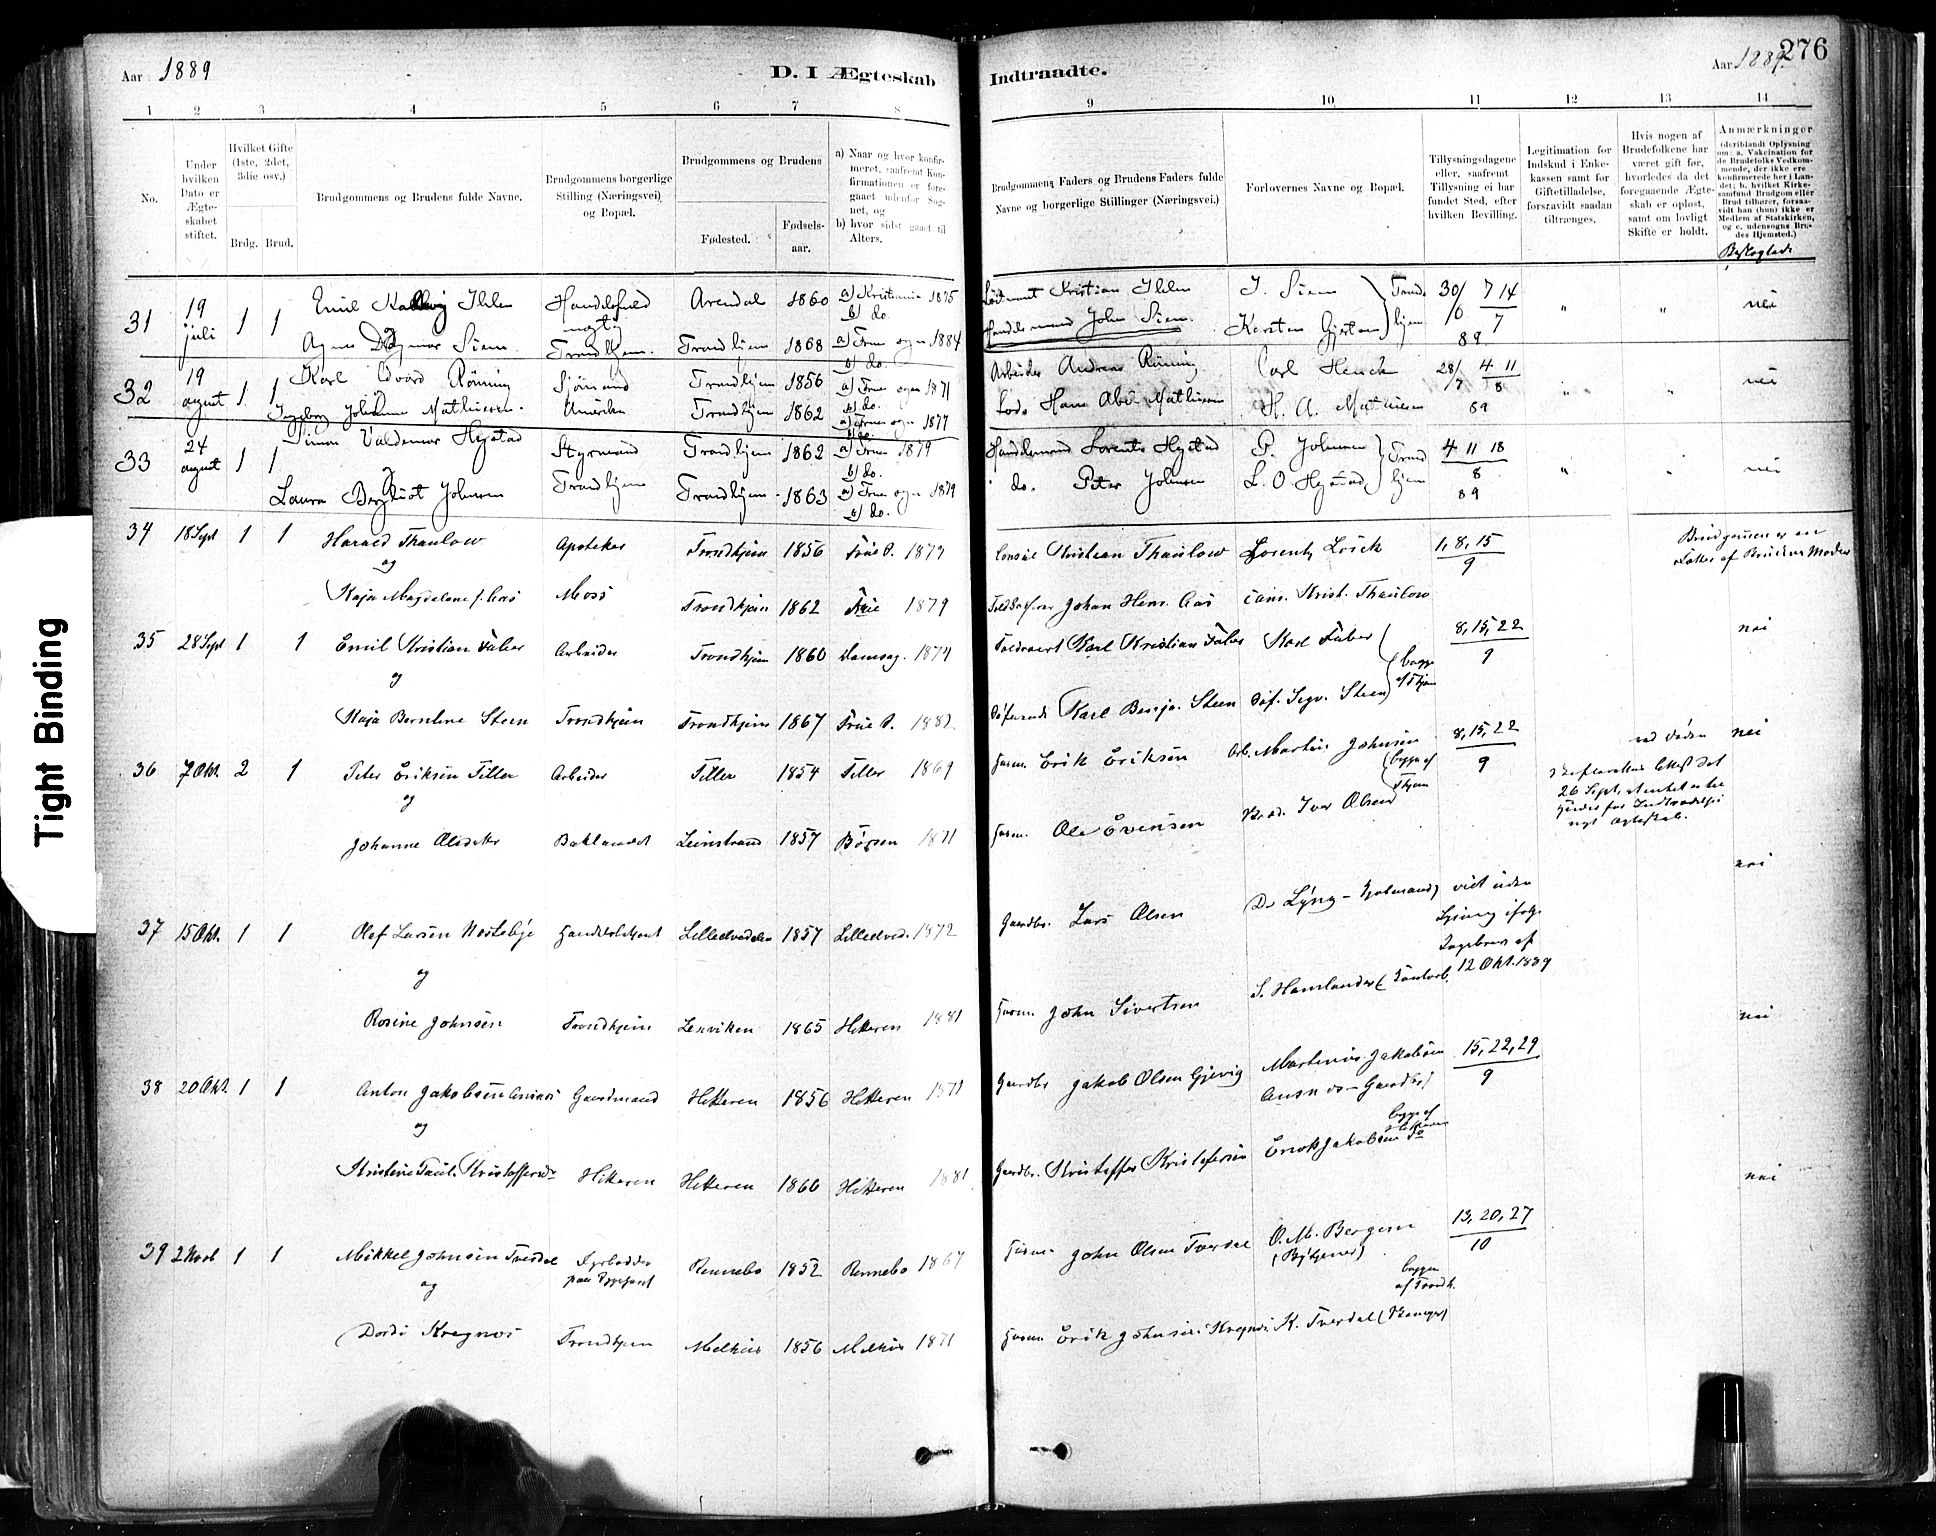 Aar 1889
D. I Ægteskab
Indtraadte.
Aar 1889.
276
1 2 3 4 5 6 7 8
9 10 11 12 13 14
No.
Under hvilken Dato er Ægteskabet stiftet.
Hvilket Gifte (1ste, 2det, 3die osv.)
Brdg. Brud.
Brudgommens og Brudens fulde Navne.
Brudgommens borgerlige Stilling (Næringsvei) og Bopæl.
Brudgommens og Brudens
Fødested.
Fødselsaar.
a) Naar og hvor konfirmeret, saafremt Konfirmationen er foregaaet udenfor Sognet, og
b) hvor sidst gaaet til Alters.
Brudgommens Faders og Brudens Faders fulde Navne og borgerlige Stillinger (Næringsvei.)
Forlovernes Navne og Bopæl.
Tillysningsdagene eller, saafremt Tillysning ei har fundet Sted, efter hvilken Bevilling.
Legitimation for Indskud i Enkekassen samt for Giftetilladelse, forsaavidt saadan tiltrænges.
Hvis nogen af Brudefolkene har været gift før, hvorledes da det foregaaende Ægteskab er opløst, samt om lovligt Skifte er holdt.
Anmærkninger (deriblandt Oplysning om: a. Vakcination for de Brudefolks Vedkommende, der ikke ere konfirmerede her i Landet; b. hvilket Kirkesamfund Brudgom eller Brud tilhører, forsaavidt han (hun) ikke er Medlem af Statskirken, og c. udensogns Brudes Hjemsted.)
Beslægtede
31 19 juli 1 1 Emil Ihlen Arendal 1860 a) Kristiania 1875 b) do. Kristian Ihlen J. Siem 30/6 7 14/7 89 " " nei
Agnes Dagmar Siem. Trondhjem. Trondhjem 1868 a) Frue sogn 1884 b) do. Handelsmand John Siem. Karsten Trondhjem
32 19 august 1 1 Karl Edvard Rönning Sjömand Trondhjem 1856 a) Frue sogn 1871 b) do. Arbeider Andreas Rönning Carl Henck 28/7 4 11/8 89 " " nei
Ingeborg Johanne Mathiesen. Amerika Trondhjem 1862 a) Frue sogn 1877 b) do. Lods Hans Abel Mathiesen H. A. Mathiesen
33 24 august 1 1 Simon Valdemar Hegstad Styrmand Trondhjem 1862 a) Frue 1879 b) do. Handelsmand Lorents Hegstad P. Johnsen 4 11 18/8 89 " " nei
Laura Bergitot Johnsen Trondhjem Trondhjem 1863 a) Frue sogn 1879 b) do. do. Peter Johnsen L. O. Hegstad Trondhjem
34 18 Sept 1 1 Harald Thaulow Apoteker Trondhjem 1856 Frue S. 1873 Consul Kristian Thaulow Lorentz Lorck 1, 8, 15/9 Brudgommen er en Fætter af Brudens Moder
og
Kaja Magdalene f. Aas Moss Trondhjem 1862 Frue 1879 Johan Henr. Aas Krist. Thaulow
35 28 Sept 1 1 Emil Kristian Faber Arbeider Trondhjem 1860 Domsog. 1874 Karl Kristian Faber Karl Faber 8, 15, 22/9 nei
og begge af Thjem
Kaja Berntine Steen Trondhjem Trondhjem 1867 Frue S. 1882 Karl Benja. Steen Steen
36 7 Okt. 2 1 Peter Eriksen Tiller Arbeider Tiller 1854 Tiller 1869 Husm. Erik Eriksen Arb. Martin Johnsen 8, 15, 22/9 ved Døden nei
og begge af Thjem
Johanne Olsdatter Baklandet Leinstrand 1857 Børsen 1871 Husm. Ole Evensen Iver Olsen 26 Sept.
nei
37 15 Okt. 1 1 Olof Larsen Nostebje Lilledvedalen 1857 Lilledved. 1872 Gaardbr. Lars Olsen viet uden Lysning ifølge Kongebrev af 12 Okt. 1889
og
Rosine Johnsen Trondhjem Lexviken 1865 Hitteren 1881 Husm. John Sivertsen S. Hamlander
nei
38 20 Okt. 1 1 Anton Jakobsen Gaardmand Hitteren 1856 Hitteren 1871 Gaardbr. Jakob Olsen Gjevig Martinus Jakobsen 15, 22, 29/9
og
Hitteren Hitteren 1860 Hitteren 1881 Gaardbr. Kristoffer Kristofersen Erik Jakobsen
nei
39 2 Novb 1 1 Mikkel Johnsen Tverdal Fyrbøder Rennebo 1852 Rennebo 1867 Husm. John Olsen Tverdal O. M. Bergem 13, 20, 27/10
og begge af Trondh.
Dordi Kregnes Trondhjem Melhus 1856 Melhus 1871 Husm. Erik Johnsen Kregnes K. Tverdal
Tight Binding